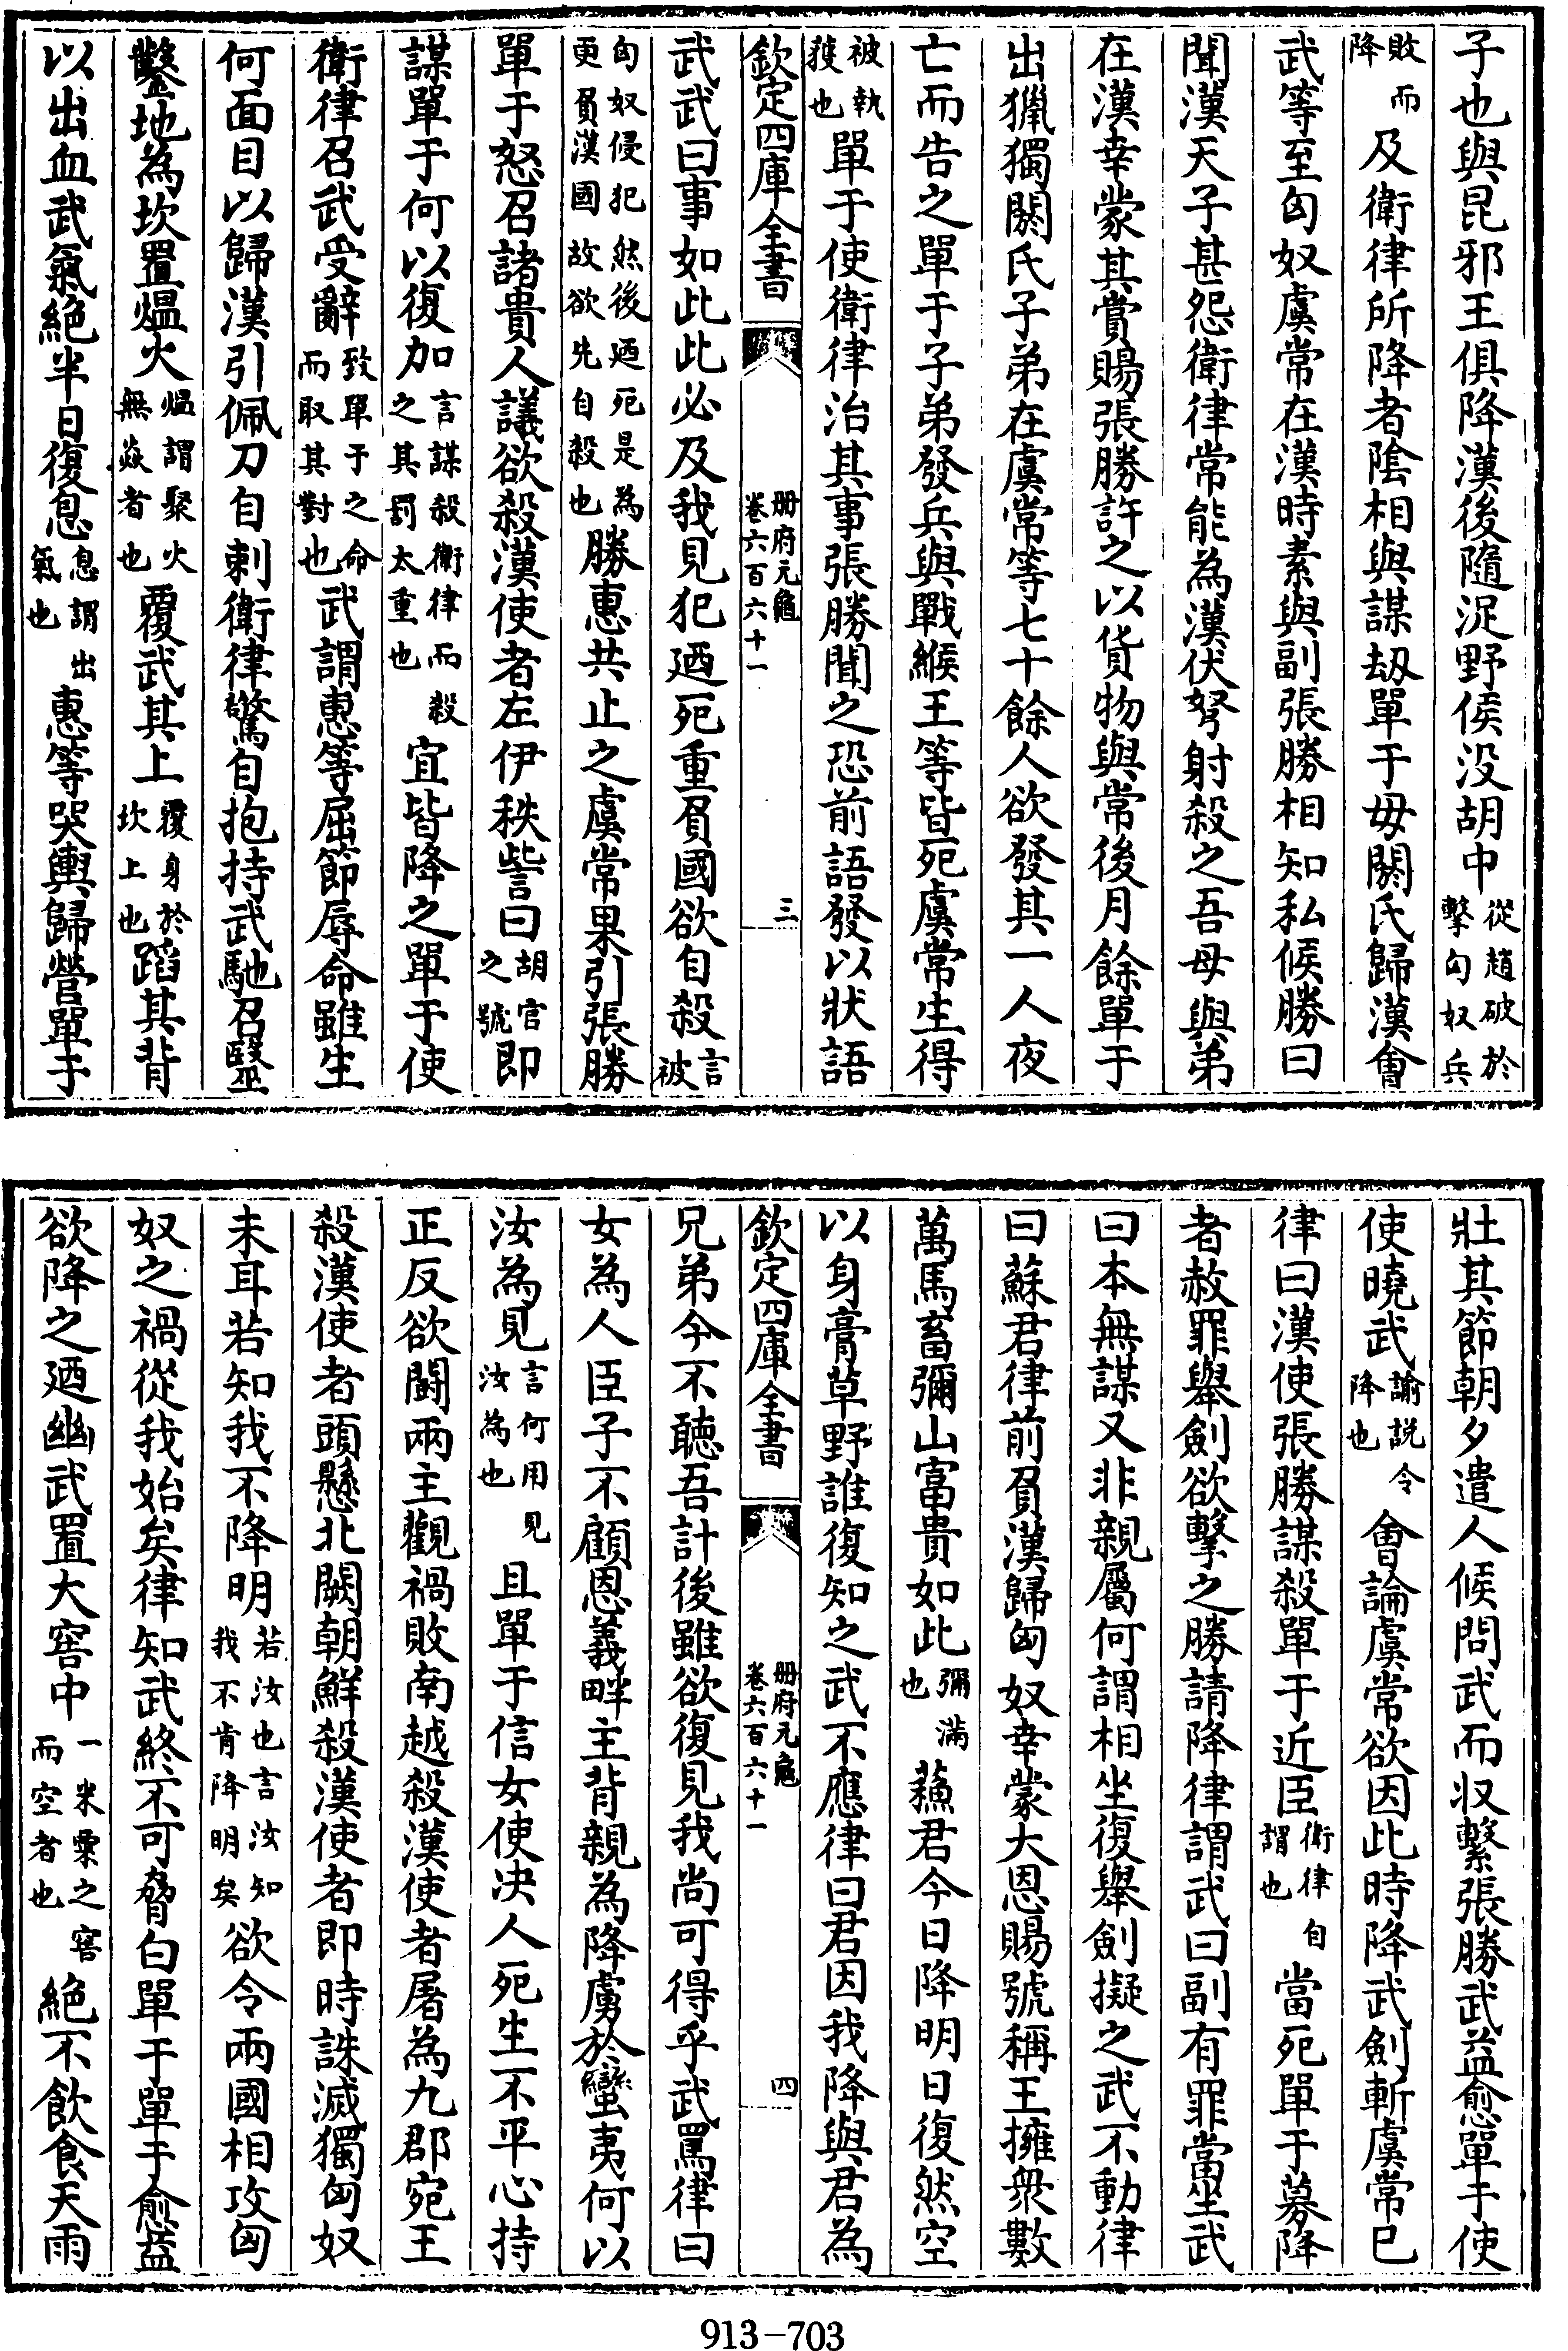 子也與昆邪王俱降漢後隨浞野侯沒胡中從趙破於擊匈奴兵
敗而降及衛律所降者陰相與謀劫單于毋閼氏歸漢會
武等至匈奴虞常在漢時素與副張勝相知私候勝曰
聞漢天子甚怨衛律常能為漢伏弩射殺之吾母與弟
在漢幸蒙其賞賜張勝許之以貨物與常後月餘單于
出獵獨閼氏子弟在虞常等七十餘人欲發其一人夜
亡而告之單于子弟發兵與戰緱王等皆死虞常生得
被執獲也單于使衛律治其事張勝聞之恐前語發以狀語
欽定四庫全書 册府元龜卷六百六十一 三
武武曰事如此此必及我見犯廼死重負國欲自殺言被
匈奴侵犯然後廼死是為更負漢國故欲先自殺也勝惠共止之虞常果引張勝
單于怒召諸貴人議欲殺漢使者左伊秩訾曰胡官之號即
謀單于何以復加言謀殺衛律而殺之其罰太重也宜皆降之單于使
衛律召武受辭致單于之命而取其對也武謂惠等屈節辱命雖生
何面目以歸漢引佩刀自刺衛律驚自抱持武馳召毉
鑿地為坎置熅火熅謂聚火無焱者也覆武其上覆身於坎上也蹈其背
以出血武氣絶半日復息息謂出氣也惠等哭輿歸營單于
壯其節朝夕遣人候問武而収繫張勝武益愈單于使
使曉武諭說令降也會論虞常欲因此時降武劍斬虞常已
律曰漢使張勝謀殺單于近臣衛律自謂也當死單于募降
者赦罪舉劍欲擊之勝請降律謂武曰副有罪當坐武
曰本無謀又非親屬何謂相坐復舉劍擬之武不動律
曰蘇君律前負漢歸匈奴幸蒙大恩賜號稱王擁衆數
萬馬畜彌山富貴如此彌滿也蘓君今日降明日復然空
以身膏草野誰復知之武不應律曰君因我降與君為
欽定四庫全書 册府元龜卷六百六十一 四
兄弟今不聽吾計後雖欲復見我尚可得乎武罵律曰
女為人臣子不顧恩義畔主背親為降虜於蠻夷何以
汝為見言何用見汝為也且單于信女使决人死生不平心持
正反欲鬬兩主觀禍敗南越殺漢使者屠為九郡宛王
殺漢使者頭懸北闕朝鮮殺漢使者即時誅滅獨匈奴
未耳若知我不降明若汝也言汝知我不肯降明矣欲令兩國相攻匈
奴之禍從我始矣律知武終不可脅白單于單于愈益
欲降之廼幽武置大窖中一米粟之窖而空者也絶不飲食天雨
913-703